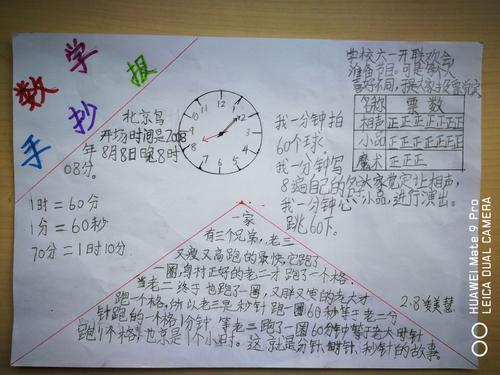 数学手抄报
北京鸟
开场时间是2008
年8月8日晚8时
08分。
12
1
2
3
4
5
6
7
8
9
10
11
1时=60分
1分=60秒
70分=1时10分
我一分钟拍
60个球。
我一分钟写
8遍自己的名
我一分钟心
跳60下。
学校六一开联欢会
准备节目。可是每人
喜好不同,
名称 票数
相声 正正正正正正正
小品 正正正正正正正
魔术 正正正
大家觉定让相声,
小品,进行演出。
一家
有三个兄弟,老三
又瘦又高跑的最快,它跑了
一圈,身材正好的老二才跑了一个格。
当老二终于也跑了一圈,又胖又笨的老大才
跑一个格,所以老三是秒针跑一圈60秒等于老二分
针跑的一个格1分钟,等老二跑了一圈60分钟等于老大时针
跑1个格,也就是1个小时。这就是分针,时针,秒针的故事。
2.8
HUAWEI Mate 9 Pro
LEICA DUAL CAMERA